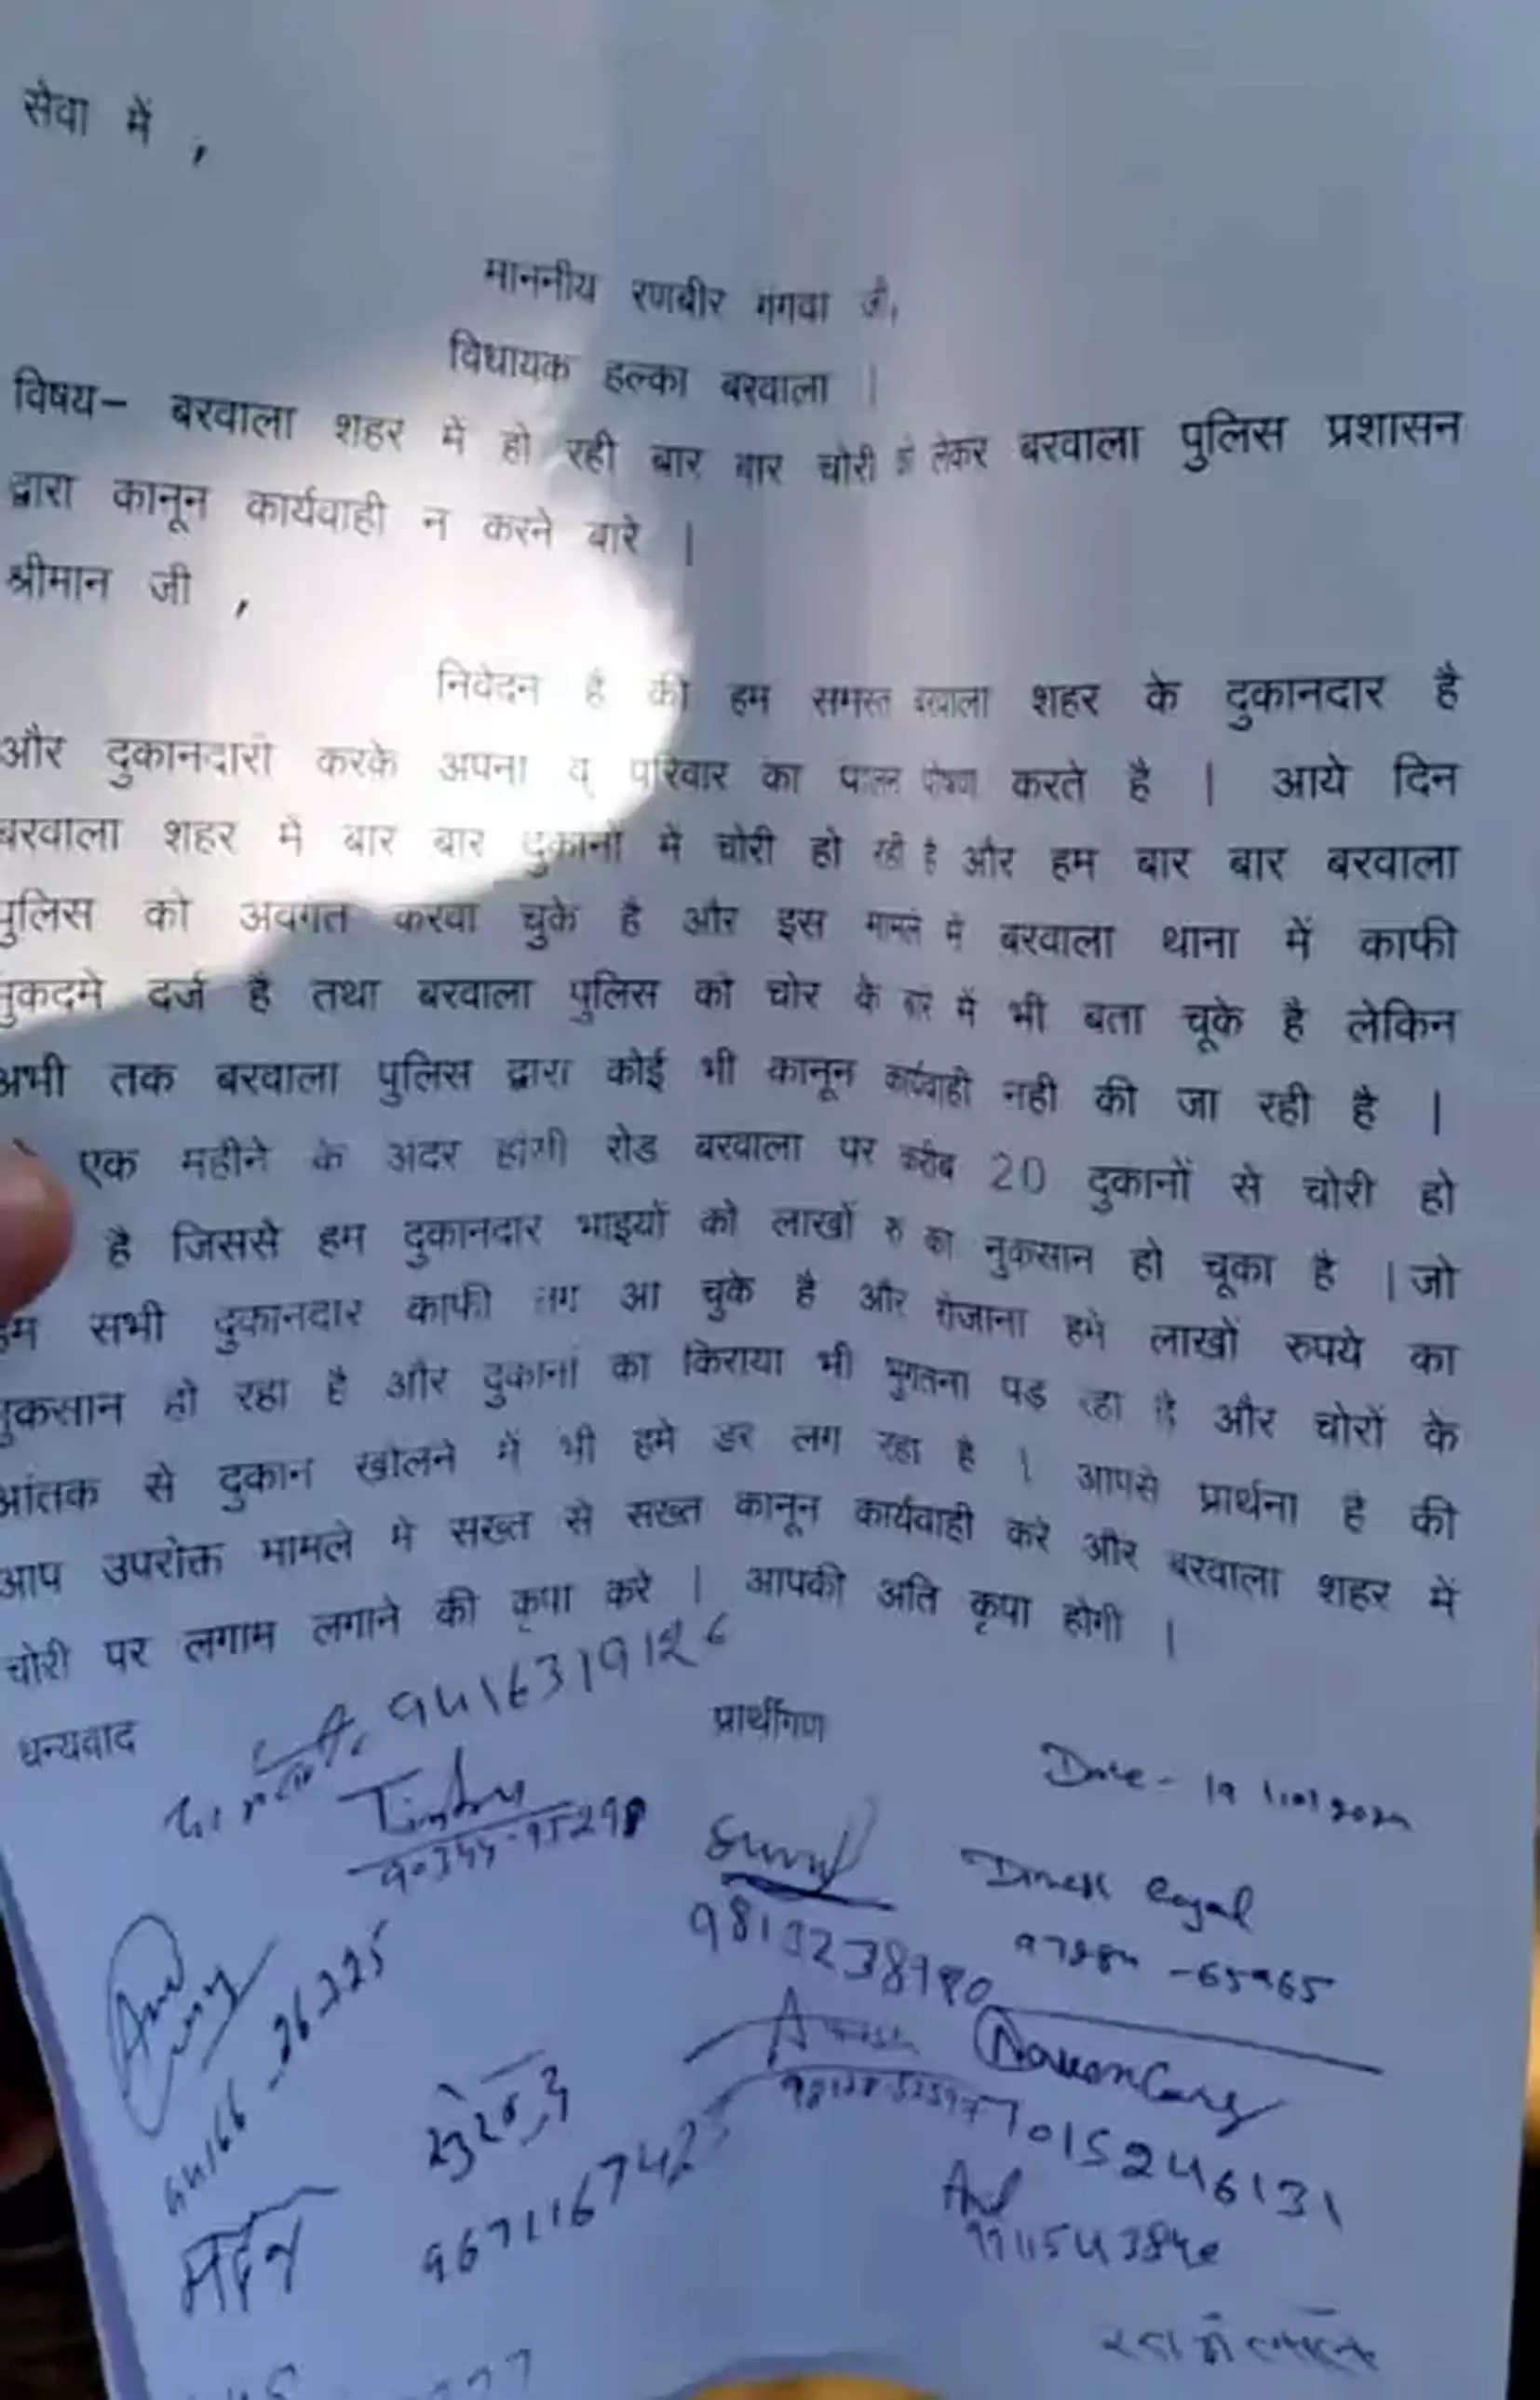 सेवा में ,
माननीय रणबीर गंगवा जी
विधायक हल्का बरवाला |
विषय– बरवाला शहर में हो रही बार बार चोरी को लेकर बरवाला पुलिस प्रशासन
द्वारा कानून कार्यवाही न करने बारे |
श्रीमान जी ,
निवेदन है की हम समस्त बरवाला शहर के दुकानदार है
और दुकानदारी करके अपना व् परिवार का पालन पोषण करते है | आये दिन
बरवाला शहर में बार बार दुकानों में चोरी हो रही है और हम बार बार बरवाला
पुलिस को अवगत करवा चुके है और इस मामले में बरवाला थाना में काफी
मुकदमे दर्ज है तथा बरवाला पुलिस को चोर के बारे में भी बता चूके है लेकिन
अभी तक बरवाला पुलिस द्वारा कोई भी कानून कार्यवाही नही की जा रही है |
एक महीने के अंदर हांसी रोड बरवाला पर करीब 20 दुकानों से चोरी हो
है जिससे हम दुकानदार भाइयों को लाखों रु का नुकसान हो चूका है | जो
हम सभी दुकानदार काफी तंग आ चुके है और रोजाना हमे लाखों रुपये का
नुकसान हो रहा है और दुकानों का किराया भी भुगतना पड़ रहा है और चोरों के
आंतक से दुकान खोलने में भी हमे डर लग रहा है | आपसे प्रार्थना है की
आप उपरोक्त मामले मे सख्त से सख्त कानून कार्यवाही करे और बरवाला शहर में
चोरी पर लगाम लगाने की कृपा करे | आपकी अति कृपा होगी |
9416319126
धन्यवाद प्रार्थीगण
Date -
Dinesh Goyal
-65965
94166-26225
7015246131
9671167425
मदन